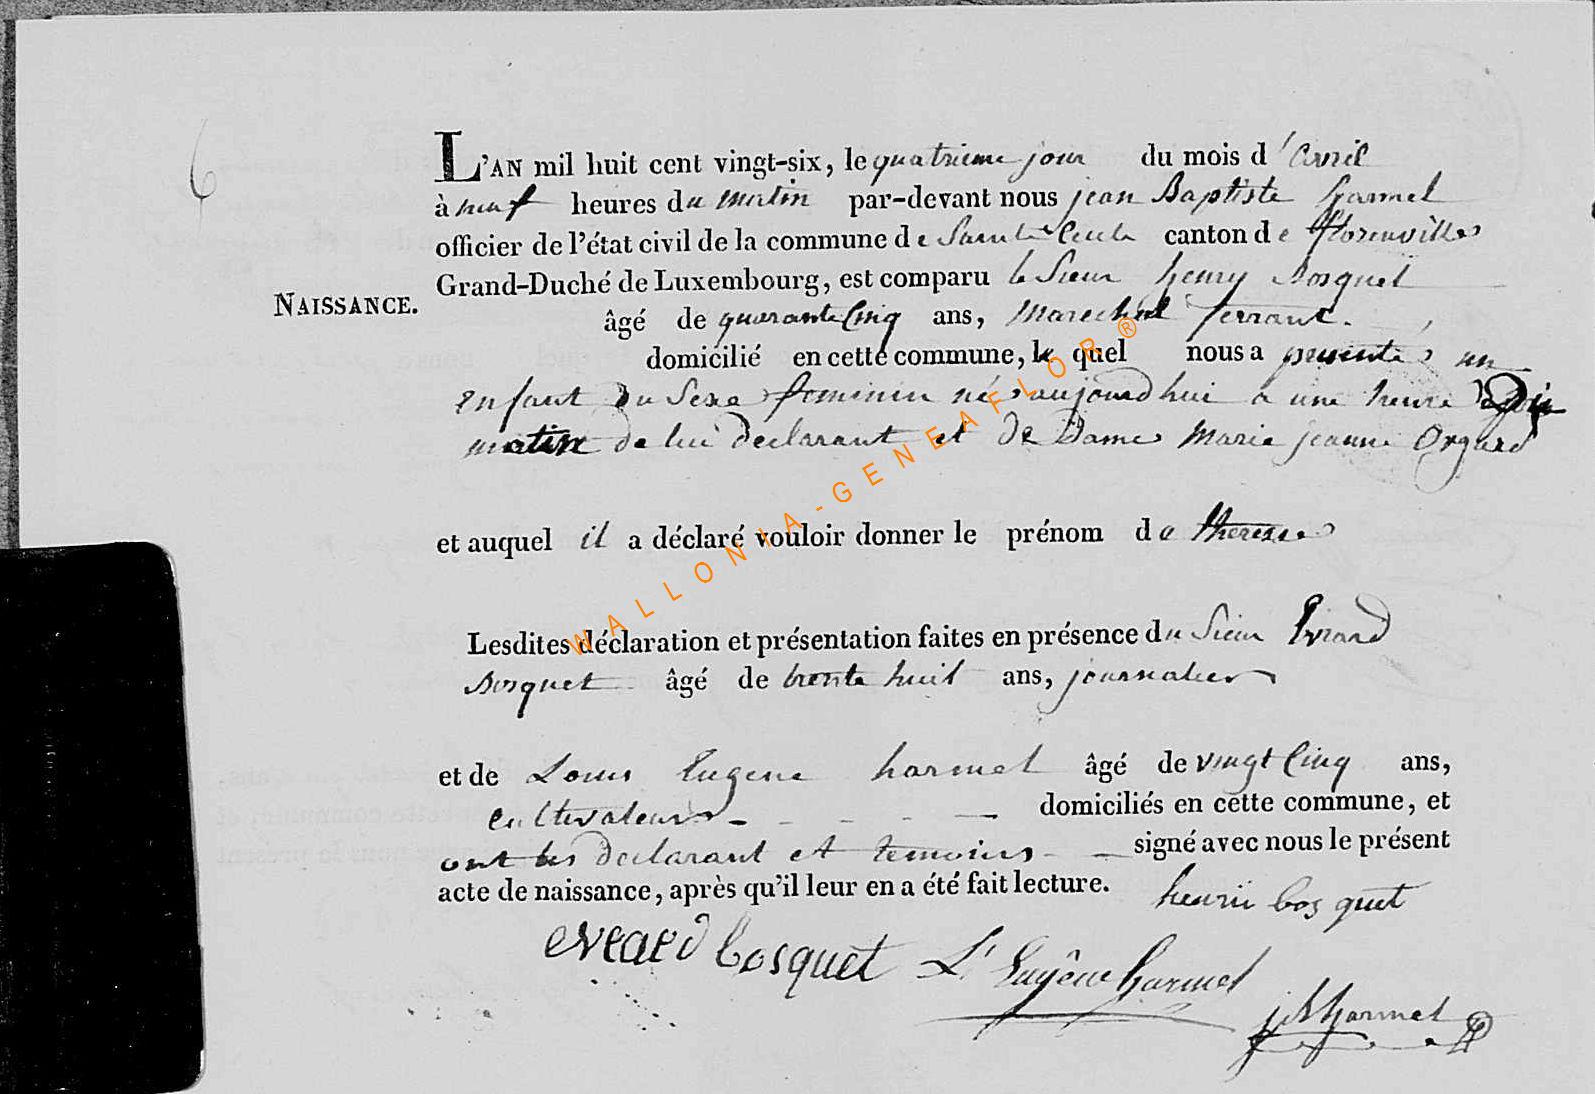 6
L'AN mil huit cent vingt-six, le quatrieme jour du mois d'avril
à neuf heures du matin par-devant nous jean Baptiste harmel
officier de l'état civil de la commune de Sainte Cecile canton de florenville
Grand-Duché de Luxembourg, est comparu le Sieur henry Bosquet
NAISSANCE.
âgé de quarante Cinq ans, Marechal ferrant.
domicilié en cette commune, le quel nous a presenté un
enfant du Sexe feminin né aujourdhui a une heure du
matin de lui declarant et de Dame Marie jeanne Orgard
et auquel il a déclaré vouloir donner le prénom de therese
Lesdites déclaration et présentation faites en présence du Sieur Evrard
Bosquet âgé de trente huit ans, journalier
et de Louis Eugene harmel âgé de vingt Cinq ans,
cultivateur - - - - — domiciliés en cette commune, et
ont les declarant et temoins - — signé avec nous le présent
acte de naissance, après qu'il leur en a été fait lecture. henrii bosquet
evrard bosquet L' Eugêne harmel
jB harmel
WALLONIA-GENEAFLOR®